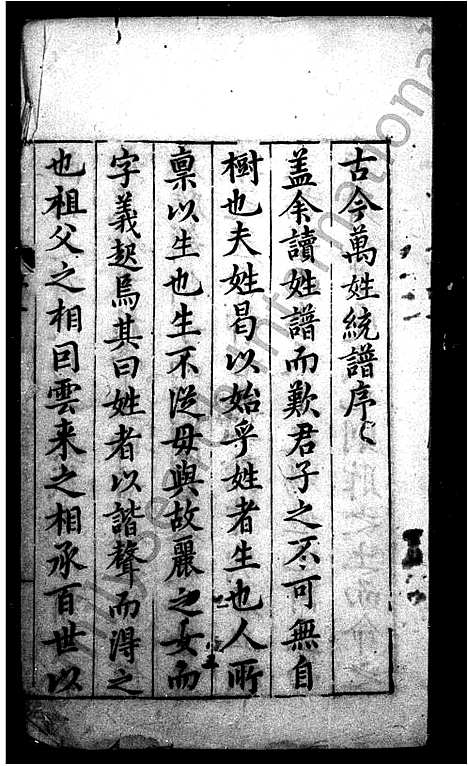 古今萬姓統譜序
盖余讀姓譜而歎君子之不可無自
樹也夫姓曷以始乎姓者生也人所
禀以生也生不從母與故麗之女而
字義起焉其曰姓者以諧聲而得之
也祖父之相因雲来之相承百世以